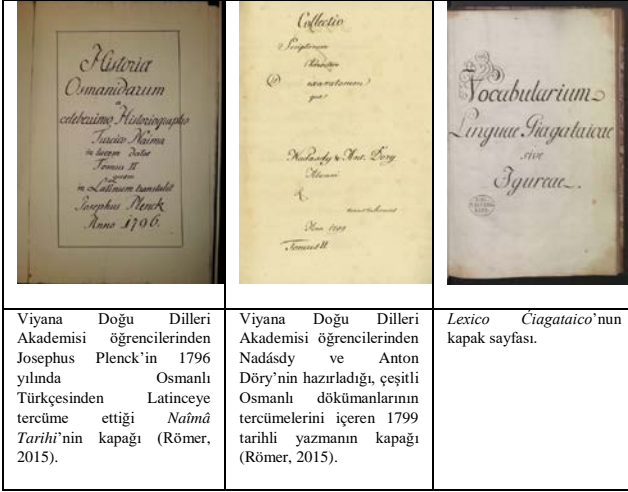 Historia
Osmanidarum
a
celeberrimo Historiographo
Turcico Naima
in lucem datus
Tomus II
quem
in Latinum transtulit
Josephus Plenck
Anno 1796.
Collectio
Scriptorum
exaratorum
quae
Nadasdy & Ant. Döry
Alumni
Anno 1799
Tomus II
Vocabularium
Linguae Giagataicae
sive
Igureae.
Viyana Doğu Dilleri
Akademisi öğrencilerinden
Josephus Plenck’in 1796
yılında Osmanlı
Türkçesinden Latinceye
tercüme ettiği Naîmâ
Tarihi’nin kapağı (Römer,
2015).
Viyana Doğu Dilleri
Akademisi öğrencilerinden
Nadásdy ve Anton
Döry’nin hazırladığı, çeşitli
Osmanlı dökümanlarının
tercümelerini içeren 1799
tarihli yazmanın kapağı
(Römer, 2015).
Lexico Ćiagataico’nun
kapak sayfası.